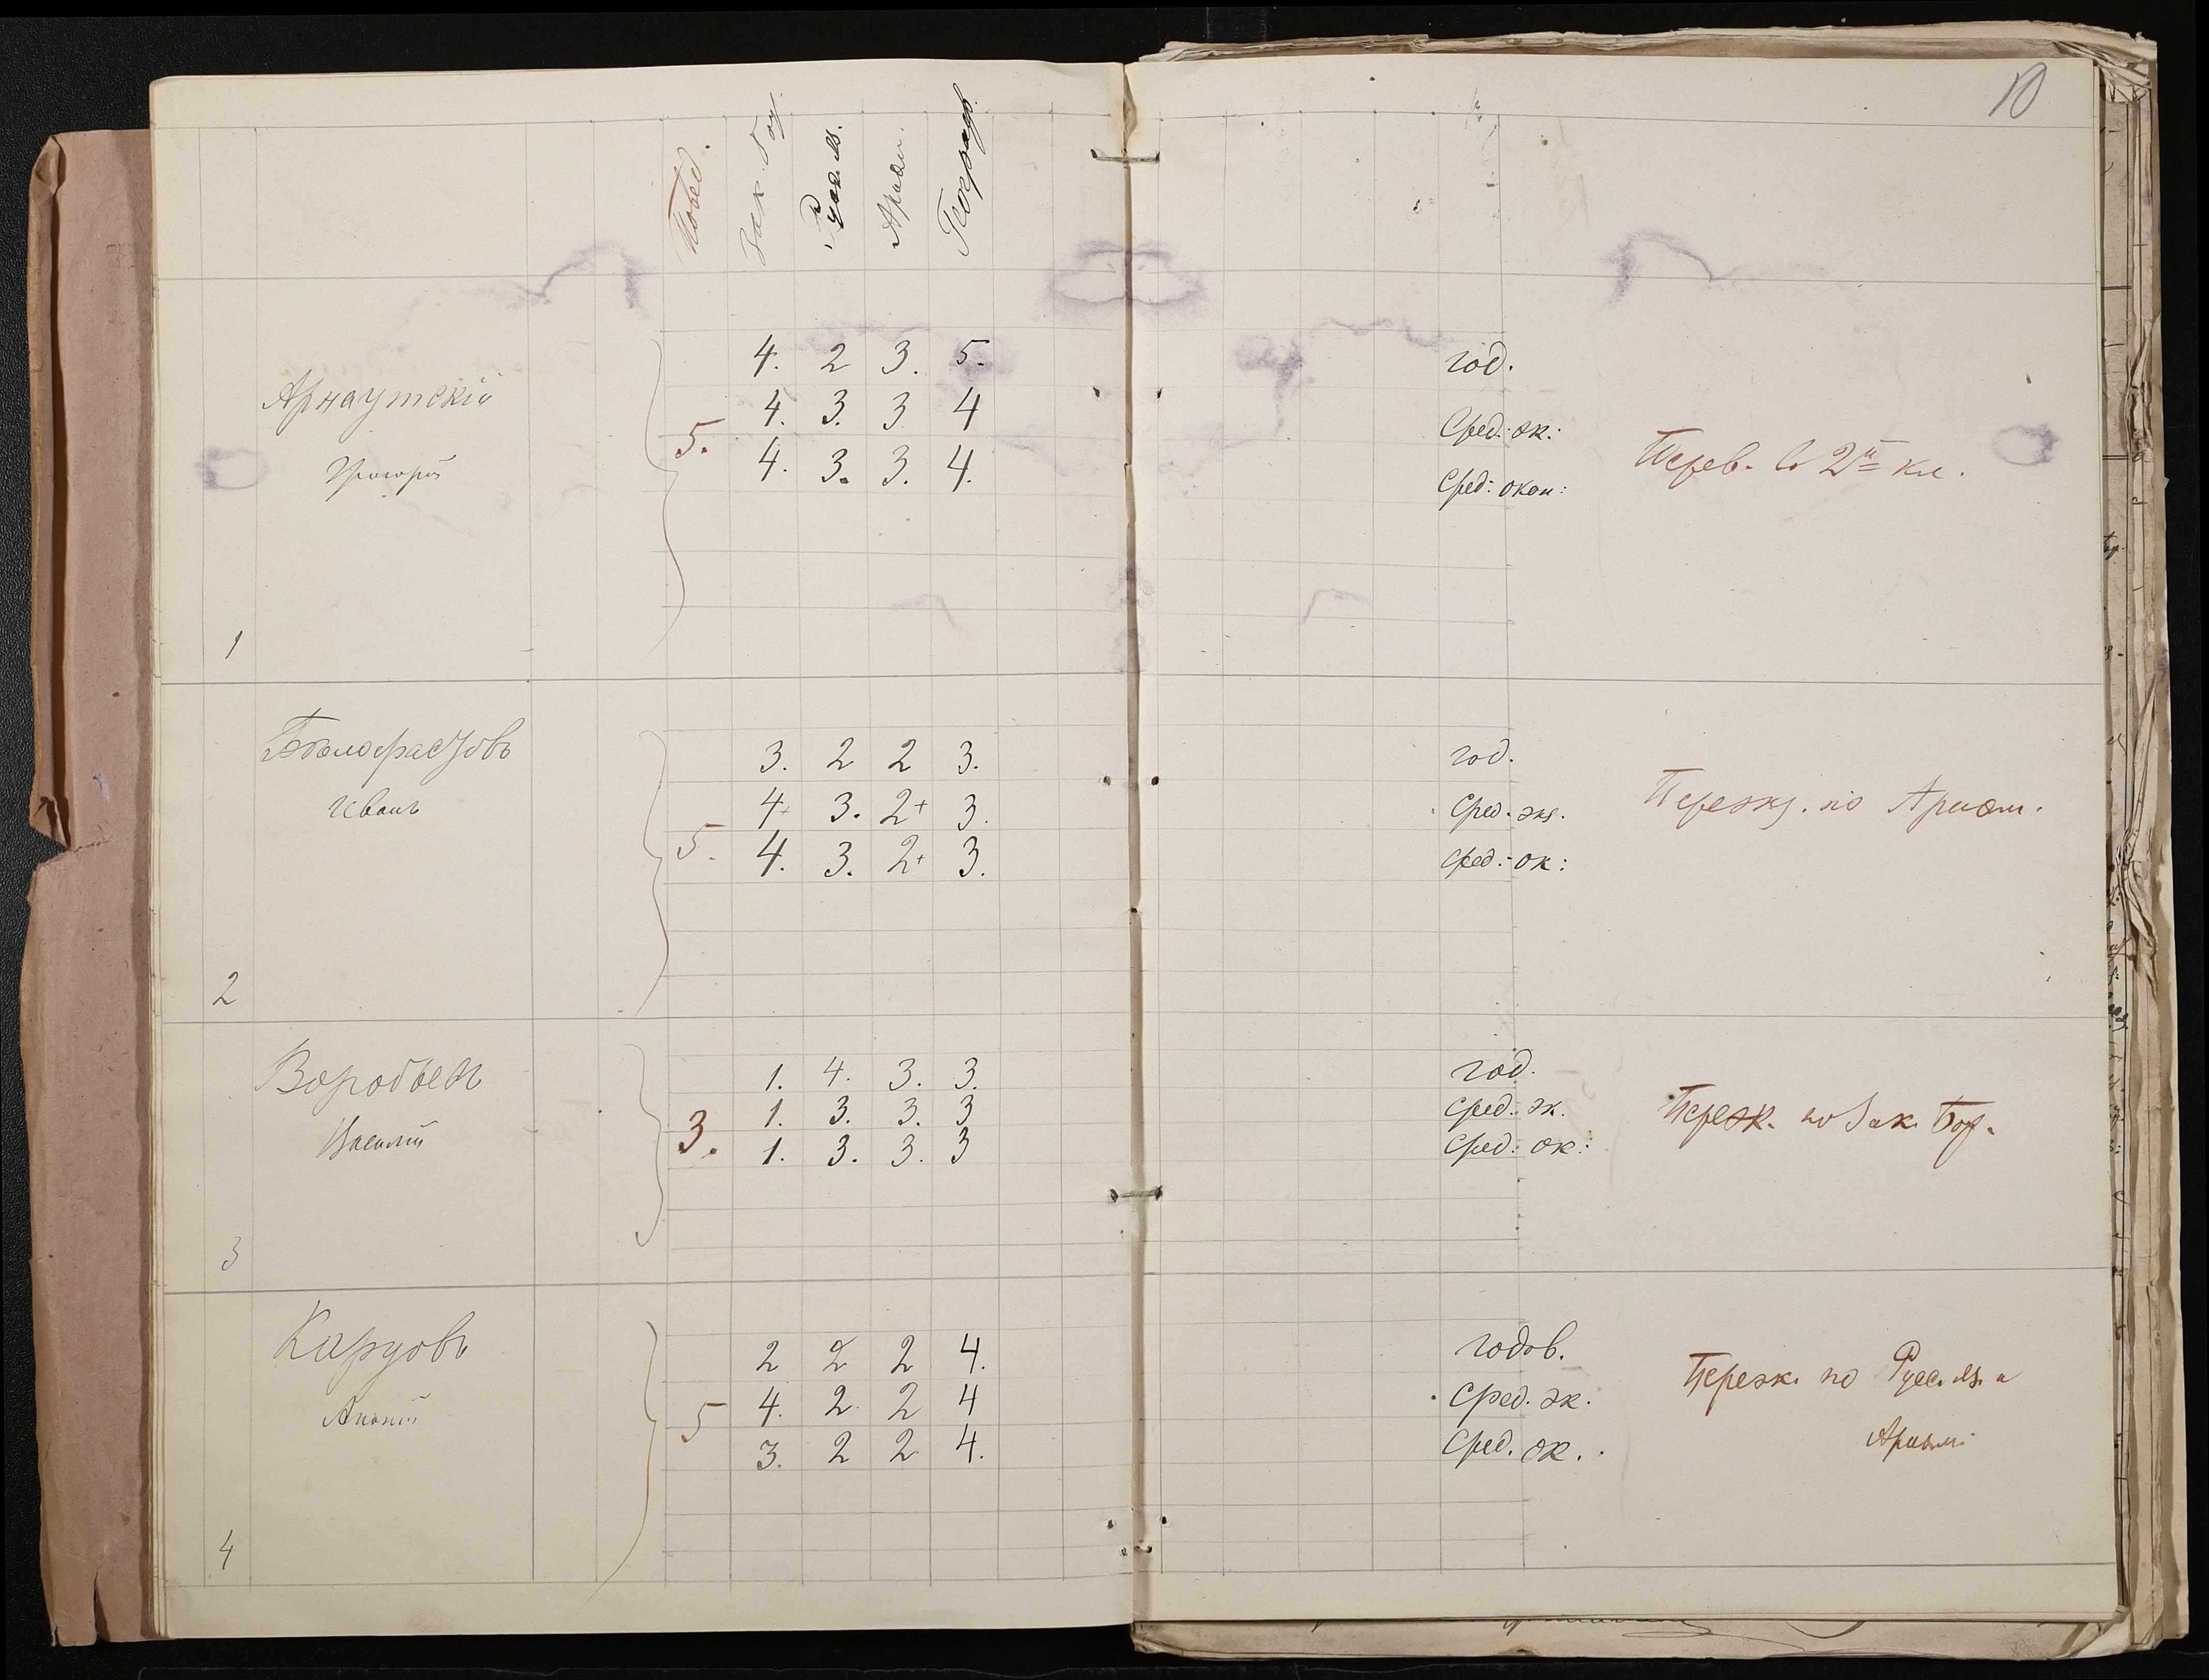 10
Повед.
Зак. Бож.
Русск. яз.
Ариѳм.
Географ.
4. 2 3. 5. год.
Арнаутскій 4. 3. 3 4 Сред. эк:
5. Перев. во 2й кл.
Григорій 4. 3. 3. 4. Сред: окон:
1
3. 2 2 3. год.
Иванъ 4. 3. 2+ 3. Сред. экз. Переэкз. по Ариѳм.
5. 4. 3. 2+ 3. сред: ок:
2
Воробьев 1. 4. 3. 3. год.
1. 3. 3. 3 Сред. эк. Переэк. по Зак. Бож.
Василій 3. 1. 3. 3. 3 Сред: ок:
3
Карповъ 2 2 2 4. годов. Переэк. по Русс. яз. и
4. 2 2 4 Сред. эк.
5 Ариѳм.
3. 2 2 4. Сред. ок.
4